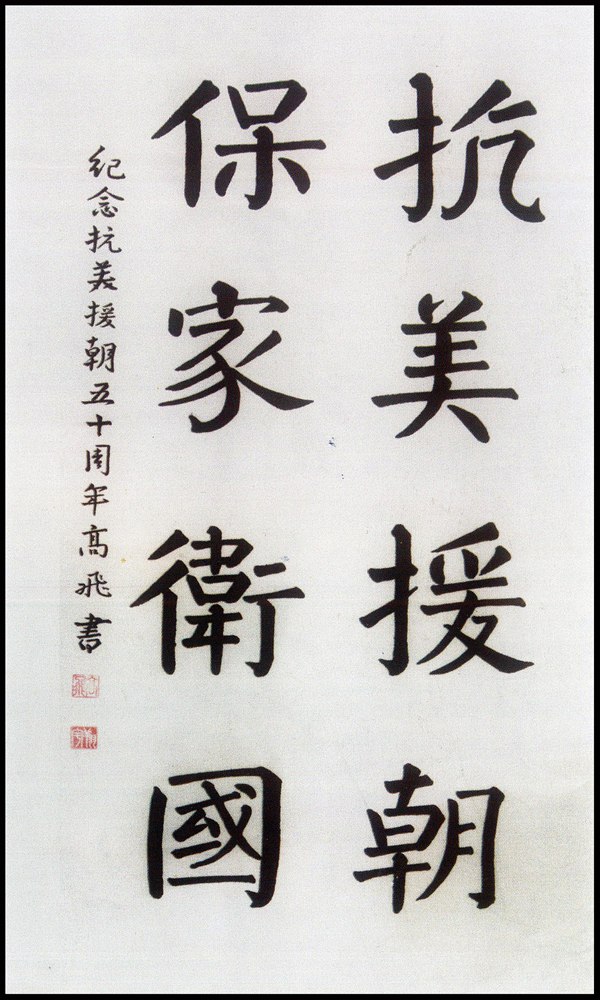 抗美援朝
保家衛國
紀念抗美援朝五十周年高飛書